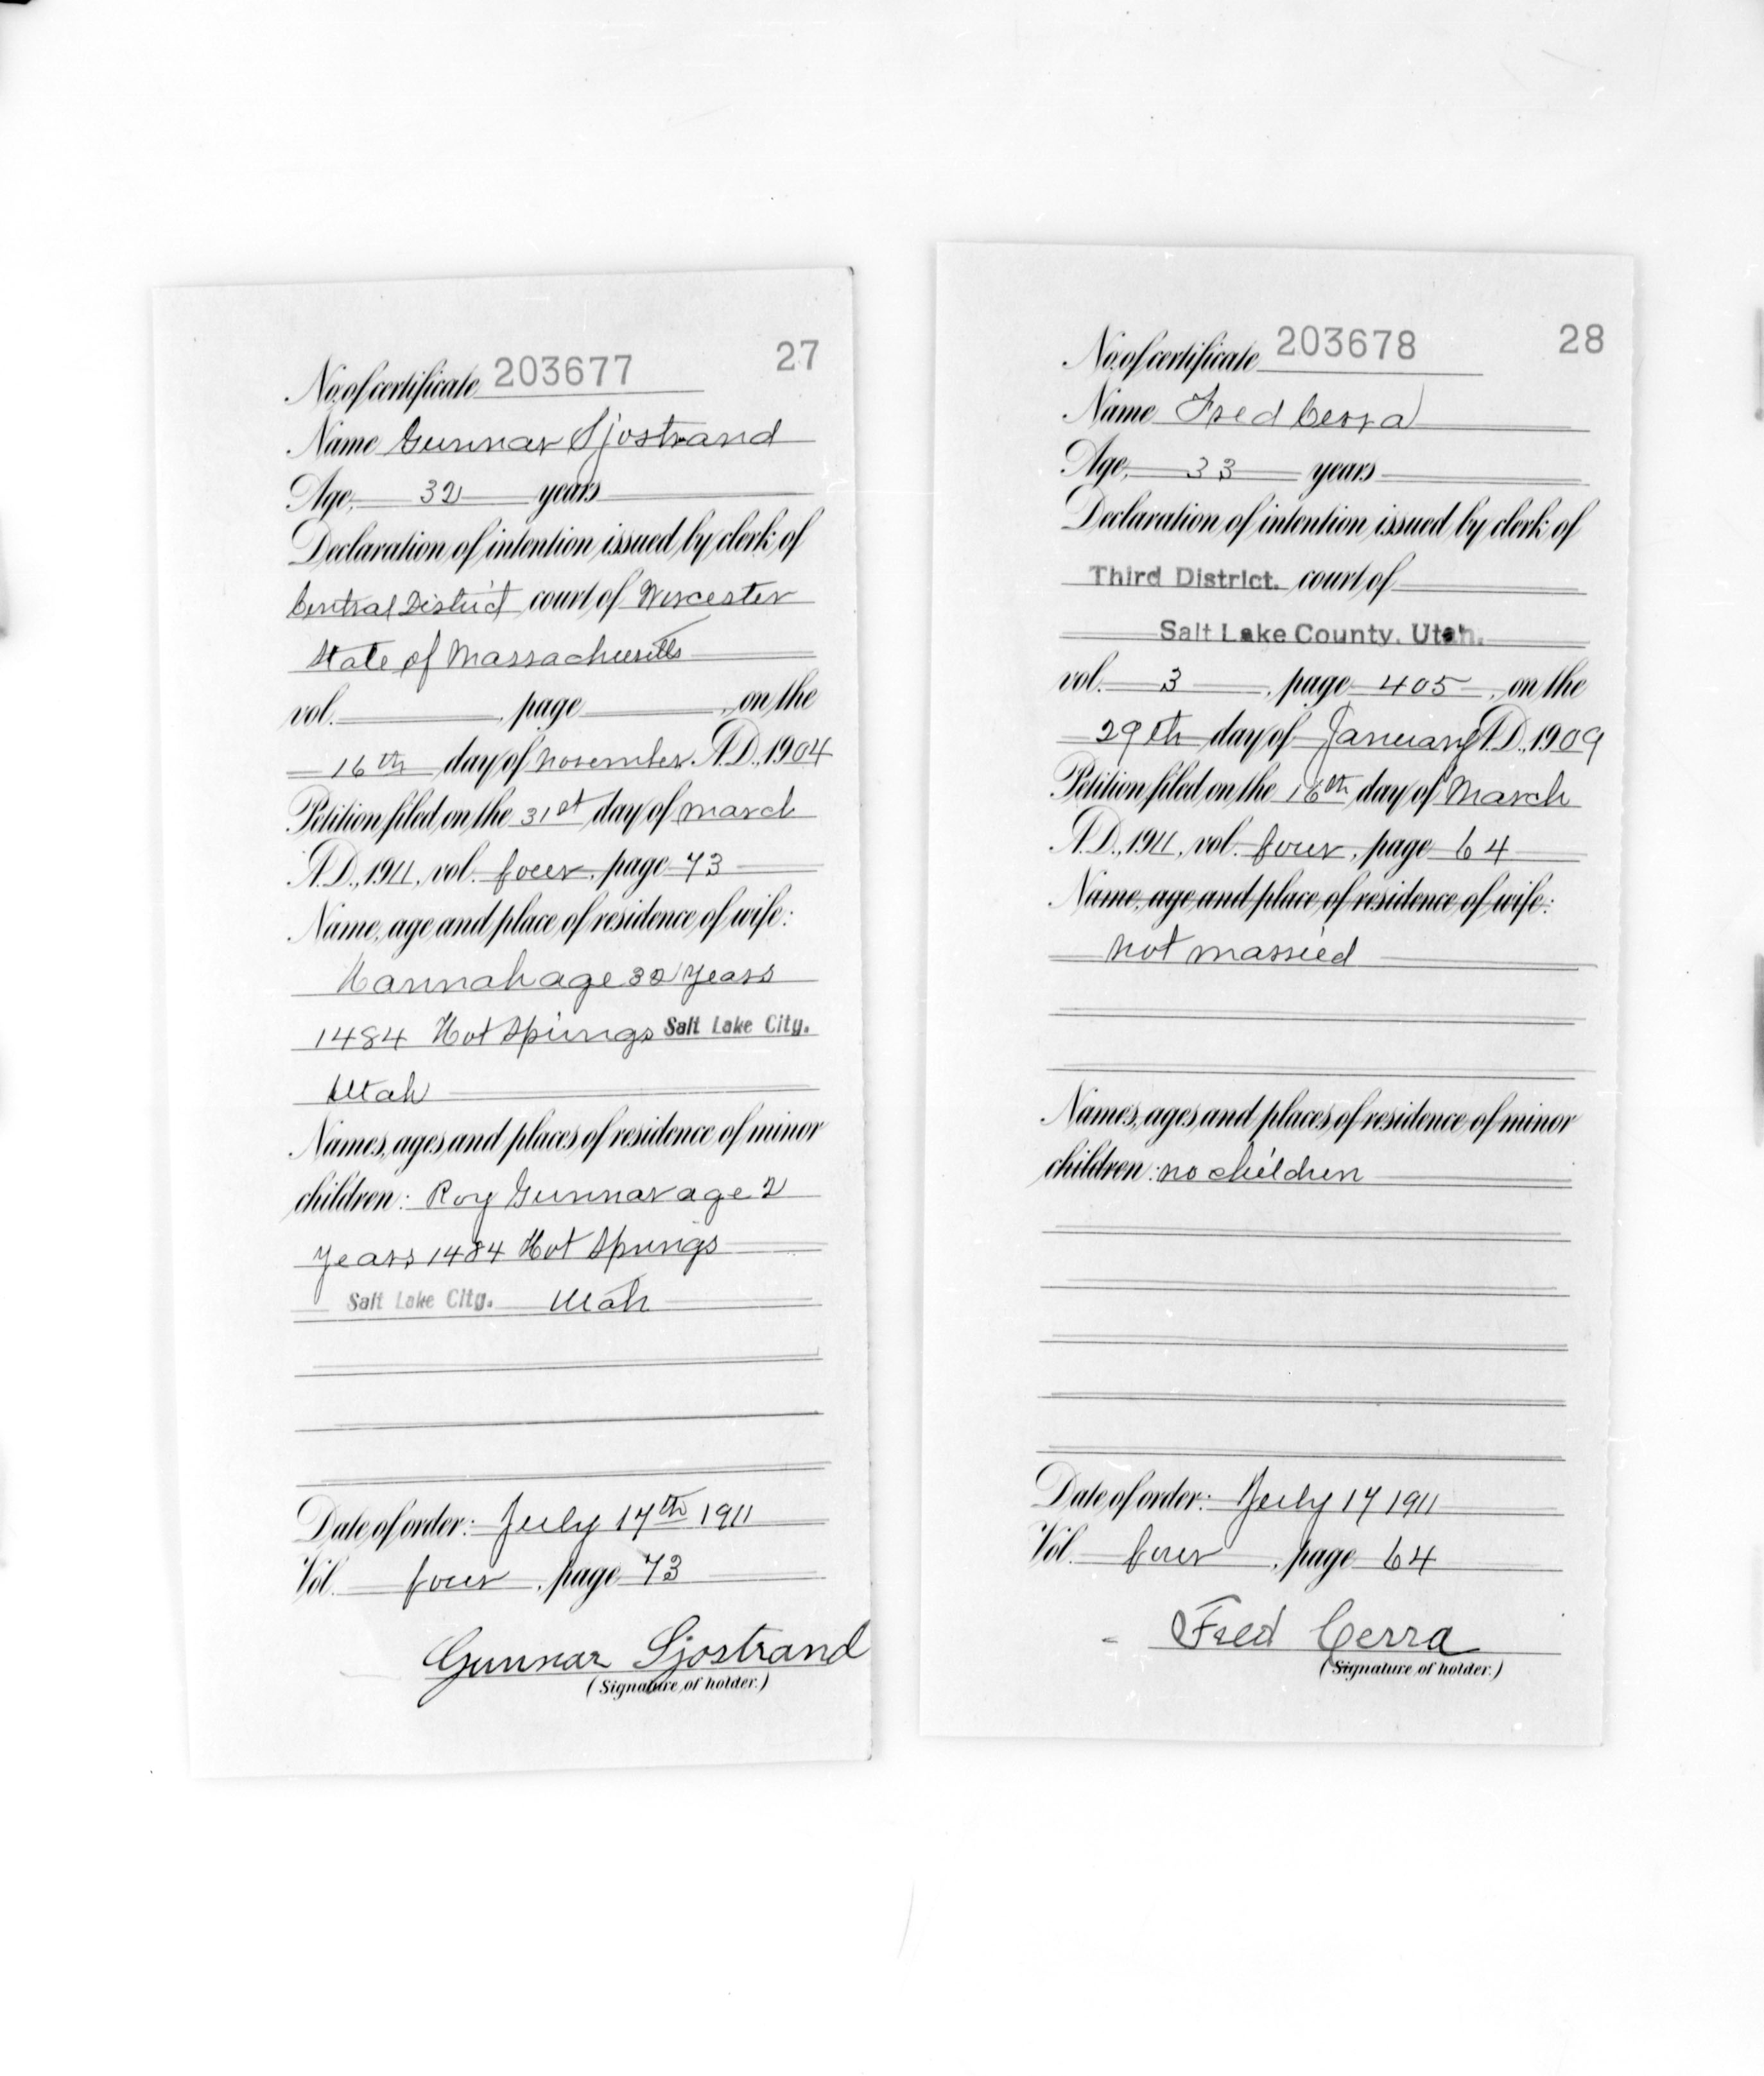 27
No. of certificate 203677
Name Gunnar Sjostrand
Age, 32 years
Declaration of intention issued by clerk of
Central District court of Worcester
State of Massachusetts
vol. , page , on the
16th day of November A.D., 1904
Petition filed on the 31st day of March
A.D., 1911, vol. four, page 73
Name, age and place of residence of wife:
Hannah age 32 years
1484 Hot Springs Salt Lake City.
Utah
Names, ages and places of residence of minor
children: Roy Gunnar age 2
years 1484 Hot Springs
Salt Lake City. Utah
Date of order: July 17th 1911
Vol. four, page 73
Gunnar Sjostrand
(Signature of holder.)
28
No. of certificate 203678
Name Fred Cerra
Age, 33 years
Declaration of intention issued by clerk of
Third District. court of
Salt Lake County, Utah.
vol. 3, page 405, on the
29th day of January A.D., 1909
Petition filed on the 16th day of March
A.D., 1911, vol. four, page 64
Name, age and place of residence of wife:
not married
Names, ages and places of residence of minor
children: no children
Date of order: July 17 1911
Vol. four, page 64
Fred Cerra
(Signature of holder.)